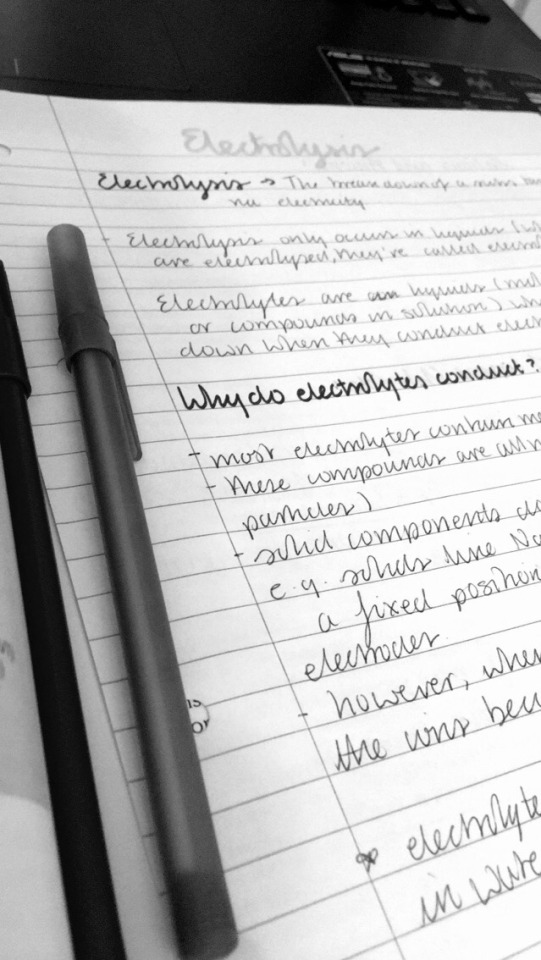 Electrolysis
Electrolysis → The breakdown of a
via electricity
- Electrolysis only occurs in liquids
are electrolysed, they're called
Electrolytes are liquids
or compounds in solution)
down when they conduct
Why do electrolytes conduct?
- most electrolytes contain
- these compounds are
particles)
- solid components
e.g. solids like
a fixed position
electrodes.
- however,
the ions
electrolyte
in
is
or